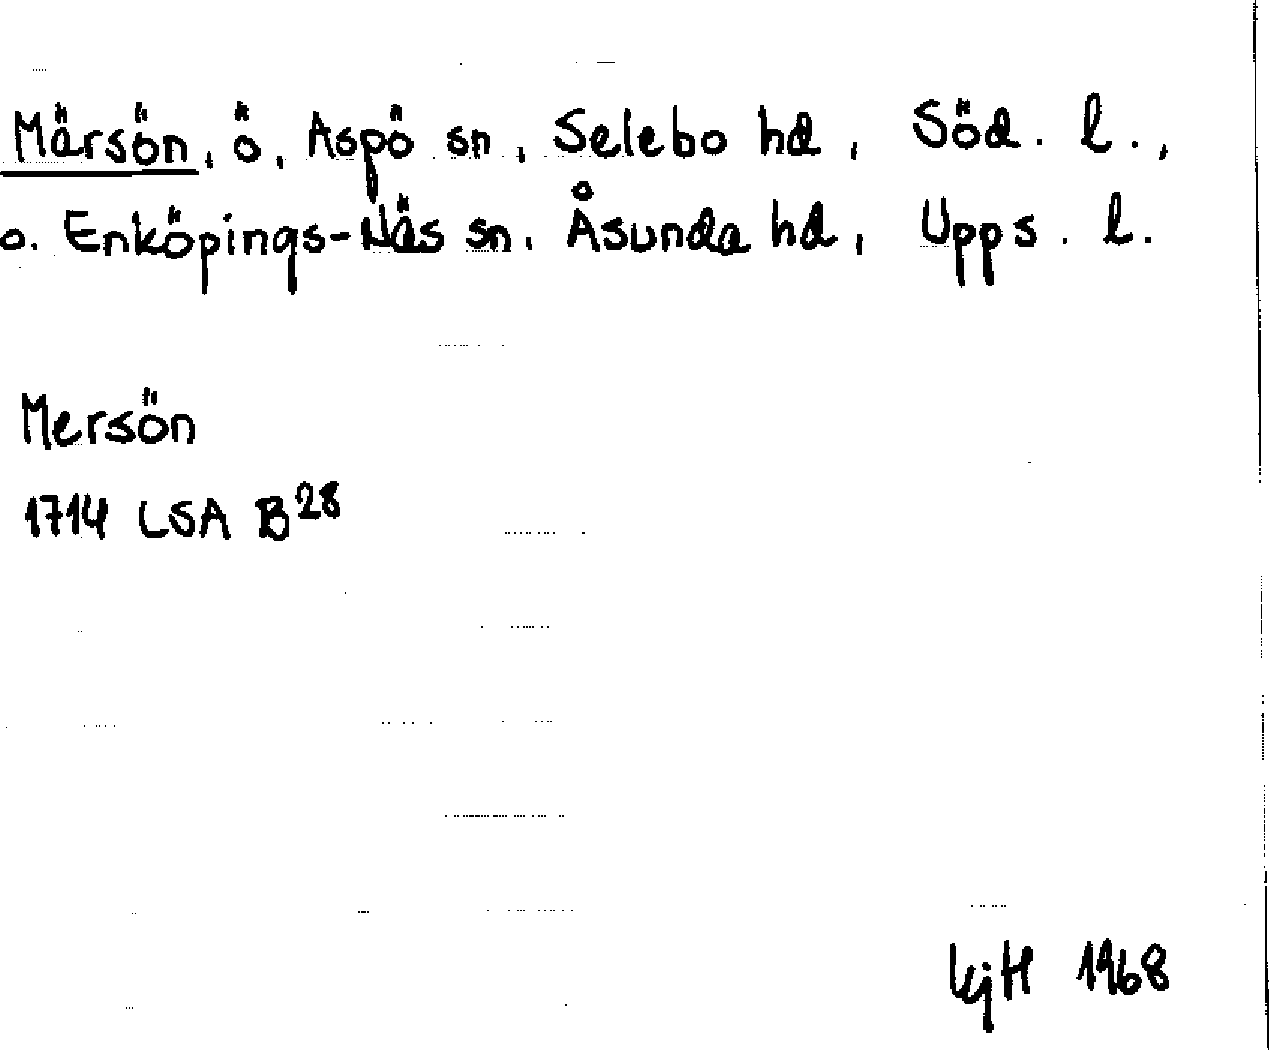 Märsön, ö, Aspö sn, Selebo hd, Söd. l.,
o. Enköpings-Näs sn, Åsunda hd, Upps. l.
Mersön
1714 LSA B28
KjH 1968